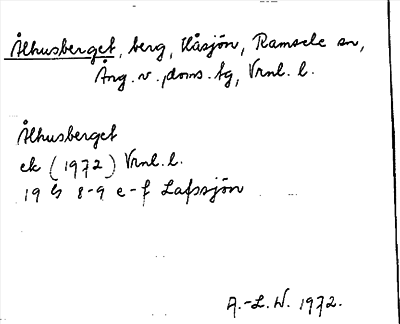 Ålhusberget, berg, Håsjön, Ramsele sn,
Ång. v. doms. tg, Vrnl. l.
Ålhusberget
ek (1972) Vrnl. l.
19 G 8-9 e-f Lafssjön
A.-L. W. 1972.